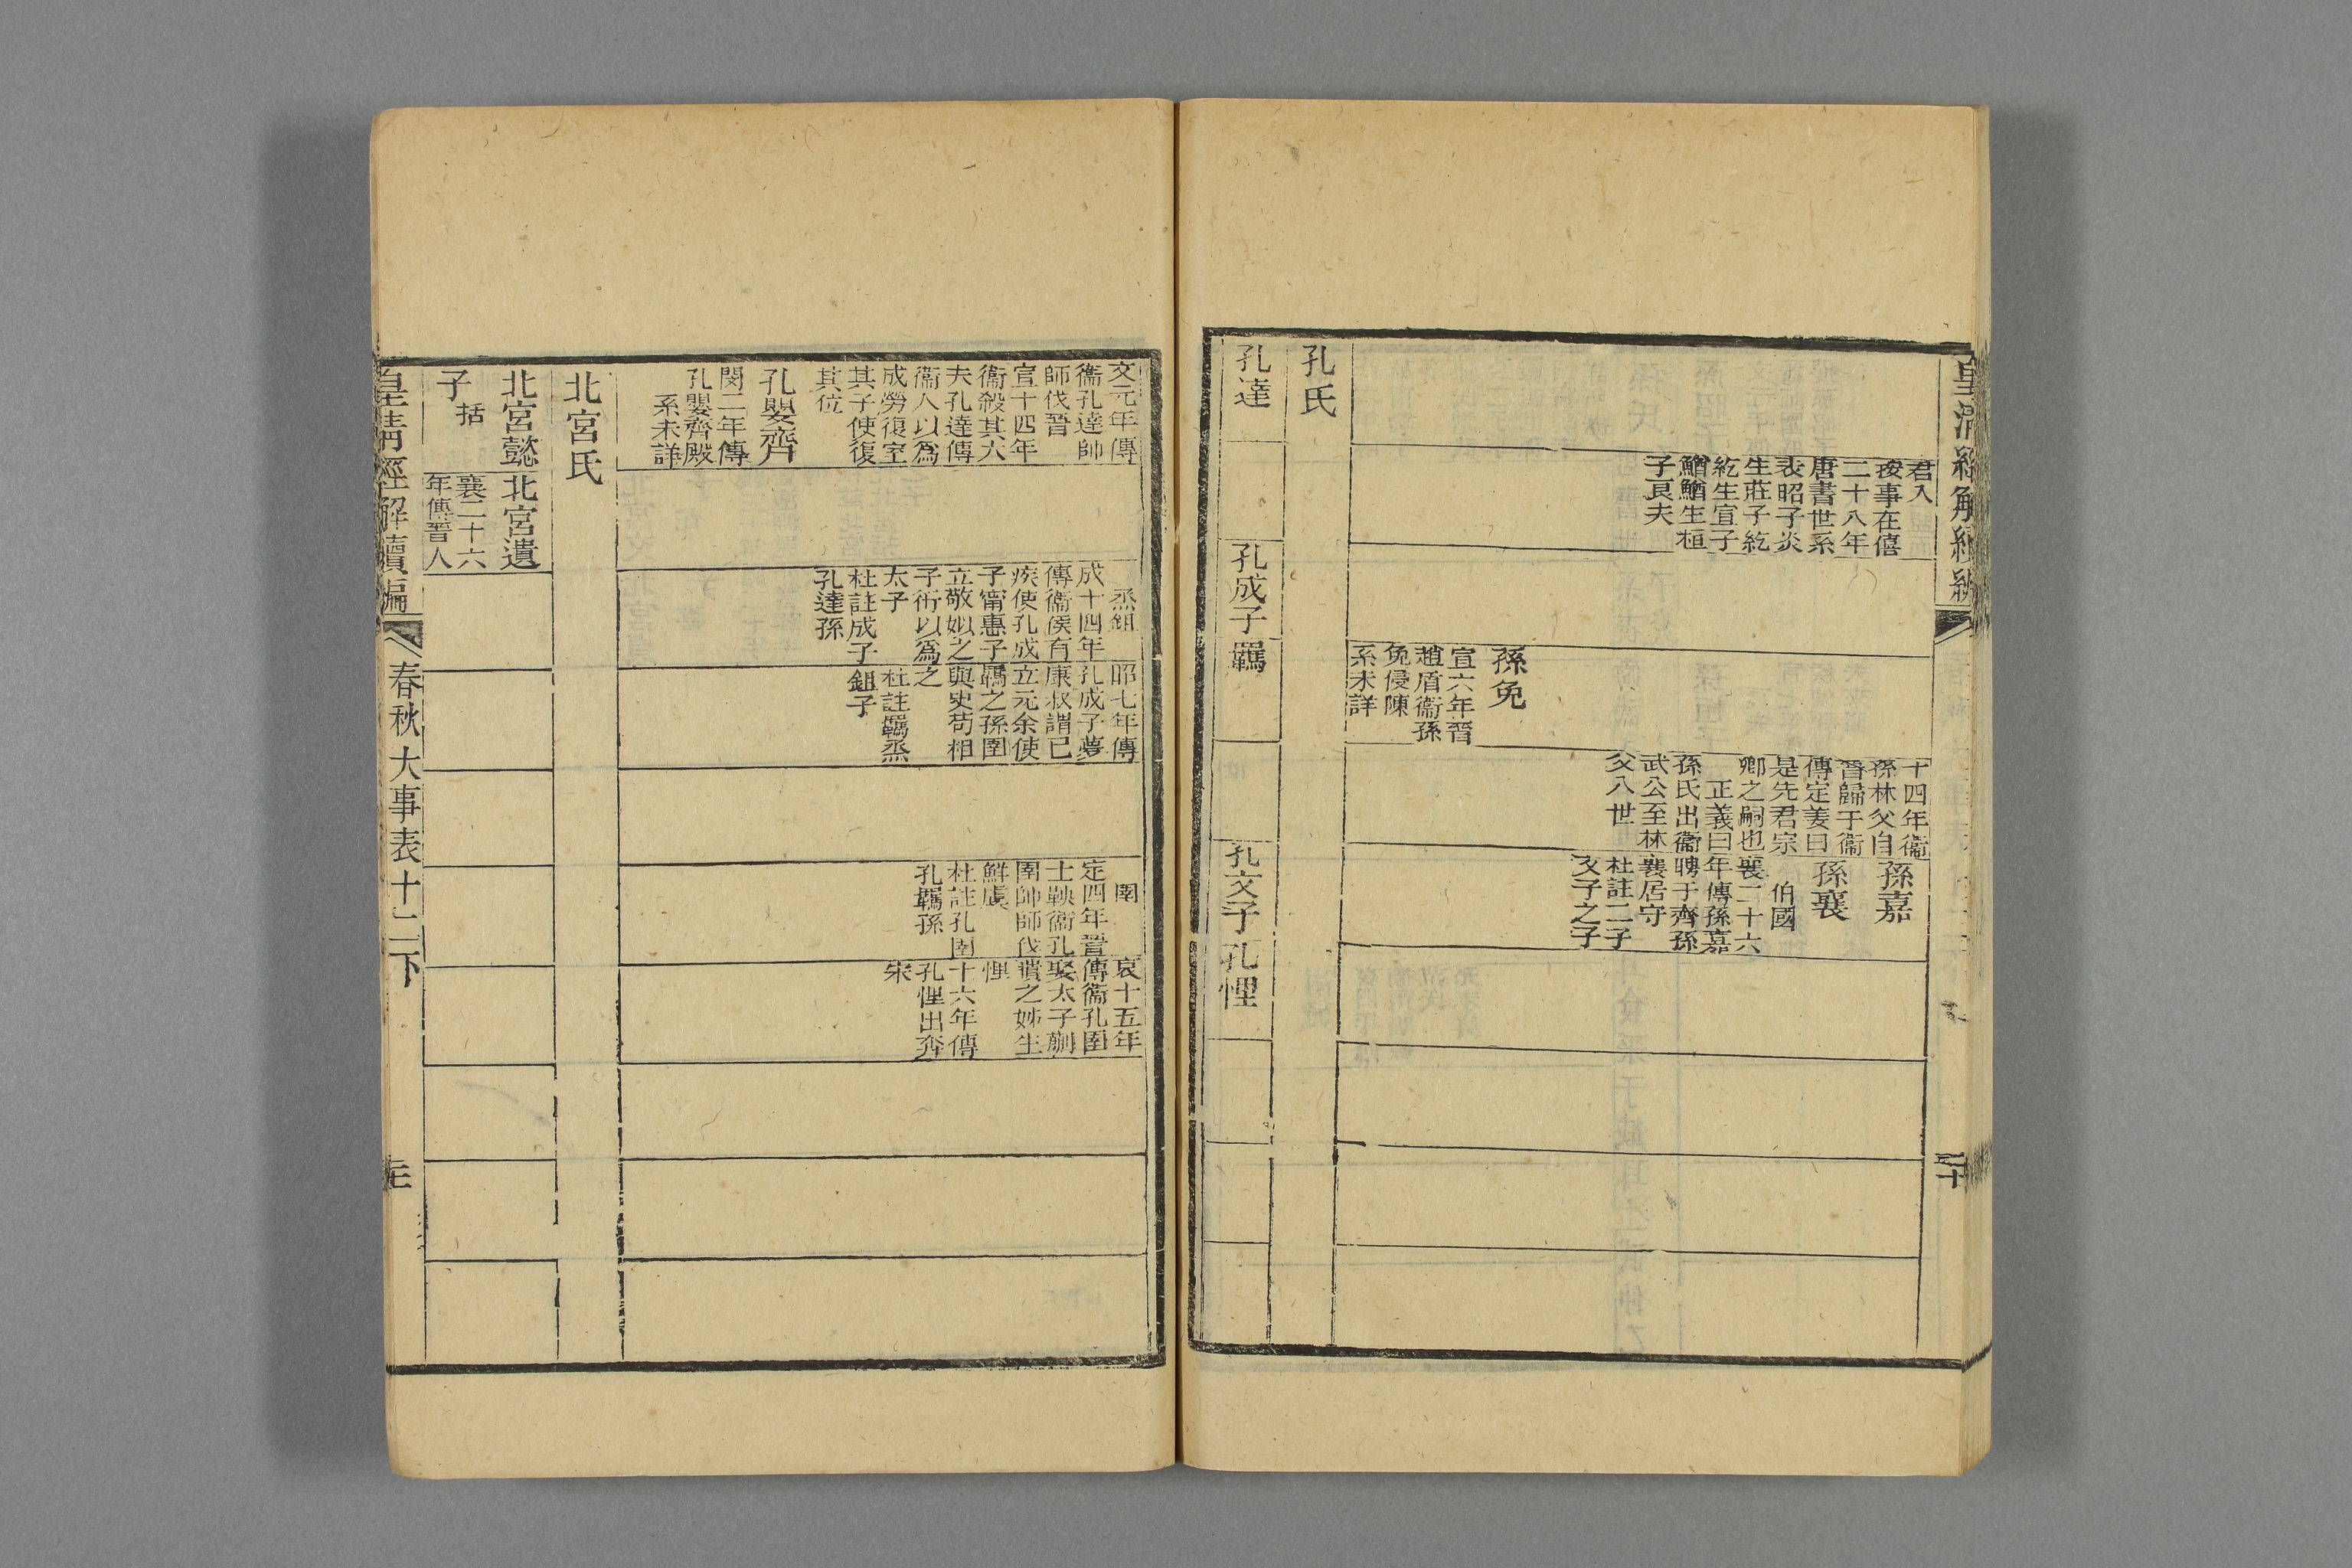 皇清經解續編
二十
君入
按事在僖
二十八年
唐書世系
表昭子炎
生莊子紇
紇生宣子
鰌鰌生桓
子良夫
孫免
宣六年晉
趙盾衞孫
免侵陳
系未詳
十四年衞
孫林父自
晉歸于衞
傳定姜曰
是先君宗
卿之嗣也
正義曰
孫氏出衞
武公至林
父八世
孫嘉
孫襄
伯國
襄二十六
年傳孫嘉
聘于齊孫
襄居守
杜註二子
文子之子
孔氏
孔達
孔成子
羈
孔文子
孔悝
文元年傳
衞孔達帥
師伐晉
宣十四年
衞殺其大
夫孔達傳
衞人以爲
成勞復室
其子使復
其位
孔嬰齊
閔二年傳
孔嬰齊殿
系未詳
烝鉏
成十四年
傳衞侯有
疾使孔成
子甯惠子
立敬姒之
子衎以爲
太子
杜註成子
孔達孫
昭七年傳
孔成子夢
康叔謂己
立元余使
羈之孫圉
與史苟相
之
杜註羈烝
鉏子
圉
定四年晉
士鞅衞孔
圉帥師伐
鮮虞
杜註孔圉
孔羈孫
哀十五年
傳衞孔圉
娶太子蒯
聵之姊生
悝
十六年傳
孔悝出奔
宋
北宮氏
北宮懿
子
括
北宮遺
襄二十六
年傳晉人
皇淸經解續編
春秋大事表十二下